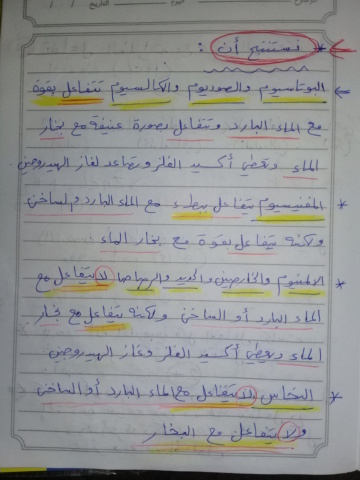 نستنتج أن :
البوتاسيوم والصوديوم والكالسيوم تتفاعل بقوة
مع الماء البارد وتتفاعل بصورة عنيفة مع بخار
الماء وتعطي أكسيد الفلز وتصاعد لغاز الهيدروجين
المغنيسيوم يتفاعل ببطء مع الماء البارد والساخن
ولكنه يتفاعل بقوة مع بخار الماء
الالمنيوم والخارصين والحديد والرصاص لا يتفاعل مع
الماء البارد أو الساخن ولكنه تتفاعل مع بخار
الماء وتعطي أكسيد الفلز وغاز الهيدروجين
النحاس لا يتفاعل مع الماء البارد أو الساخن
ولا يتفاعل مع البخار